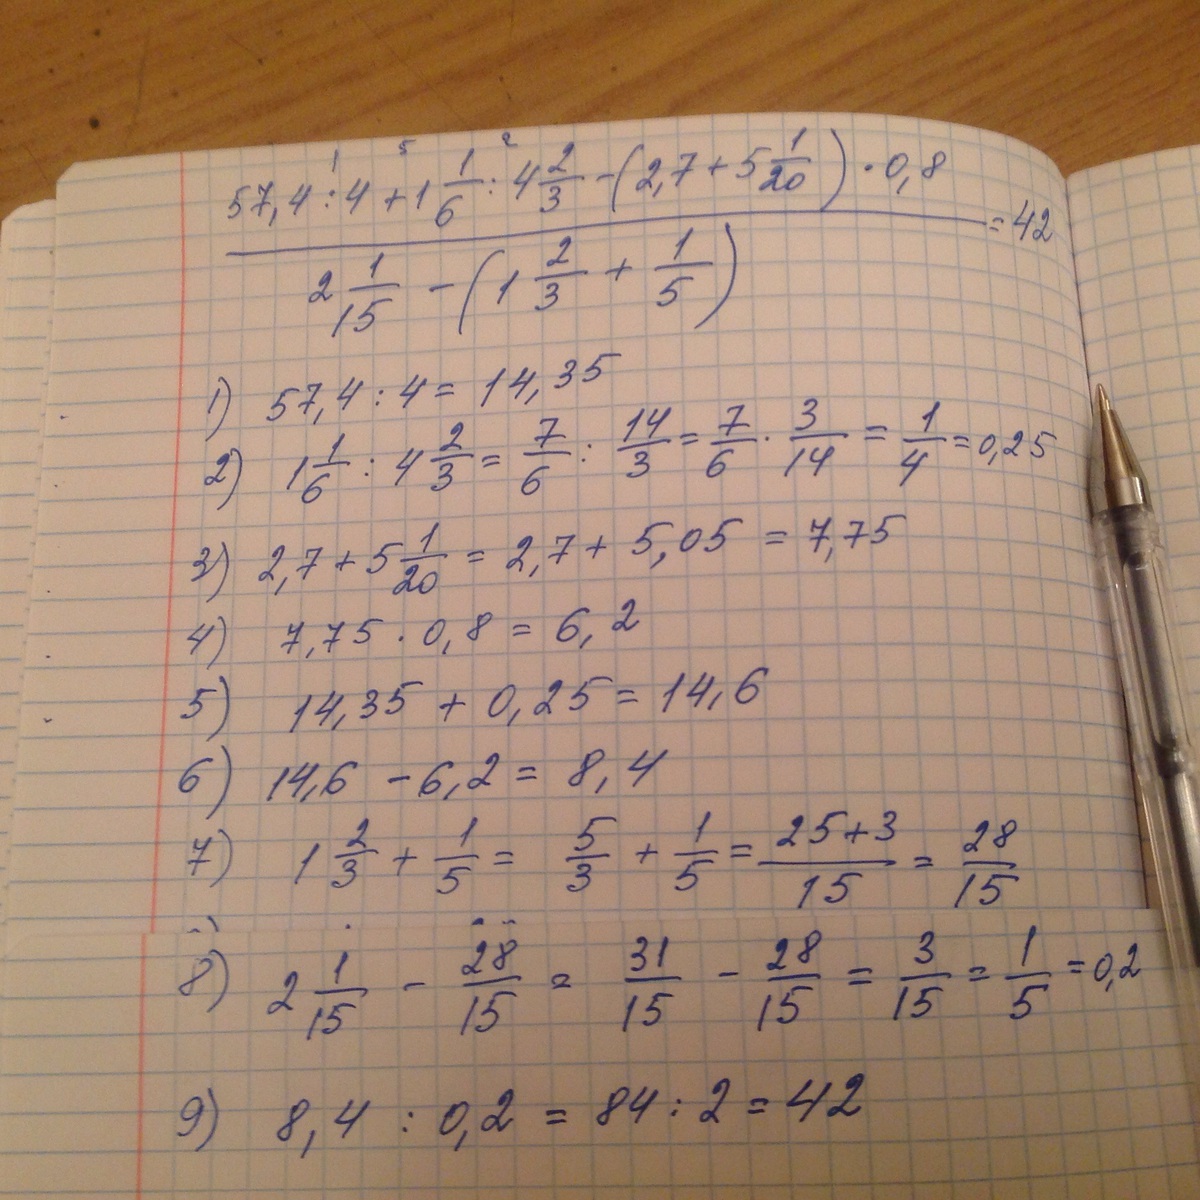 1 5 2
57,4 : 4 + 1 1/6 : 4 2/3 - (2,7 + 5 1/20) · 0,8
= 42
2 1/15 - (1 2/3 + 1/5)
1) 57,4 : 4 = 14,35
2) 1 1/6 : 4 2/3 = 7/6 : 14/3 = 7/6 · 3/14 = 1/4 = 0,25
3) 2,7 + 5 1/20 = 2,7 + 5,05 = 7,75
4) 7,75 · 0,8 = 6,2
5) 14,35 + 0,25 = 14,6
6) 14,6 - 6,2 = 8,4
7) 1 2/3 + 1/5 = 5/3 + 1/5 = 25+3/15 = 28/15
8) 2 1/15 - 28/15 = 31/15 - 28/15 = 3/15 = 1/5 = 0,2
9) 8,4 : 0,2 = 84 : 2 = 42